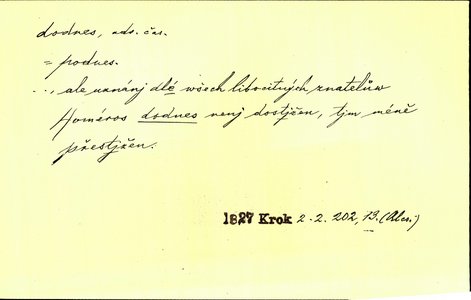 dodnes, adv. čas.
= podnes.
..., ale uznánj dlé wšech libocitných znatelůw
Homéros dodnes nenj dostjžen, tjm méně
přestjžen.
1827 Krok 2. 2. 202, 13. (Alex.)